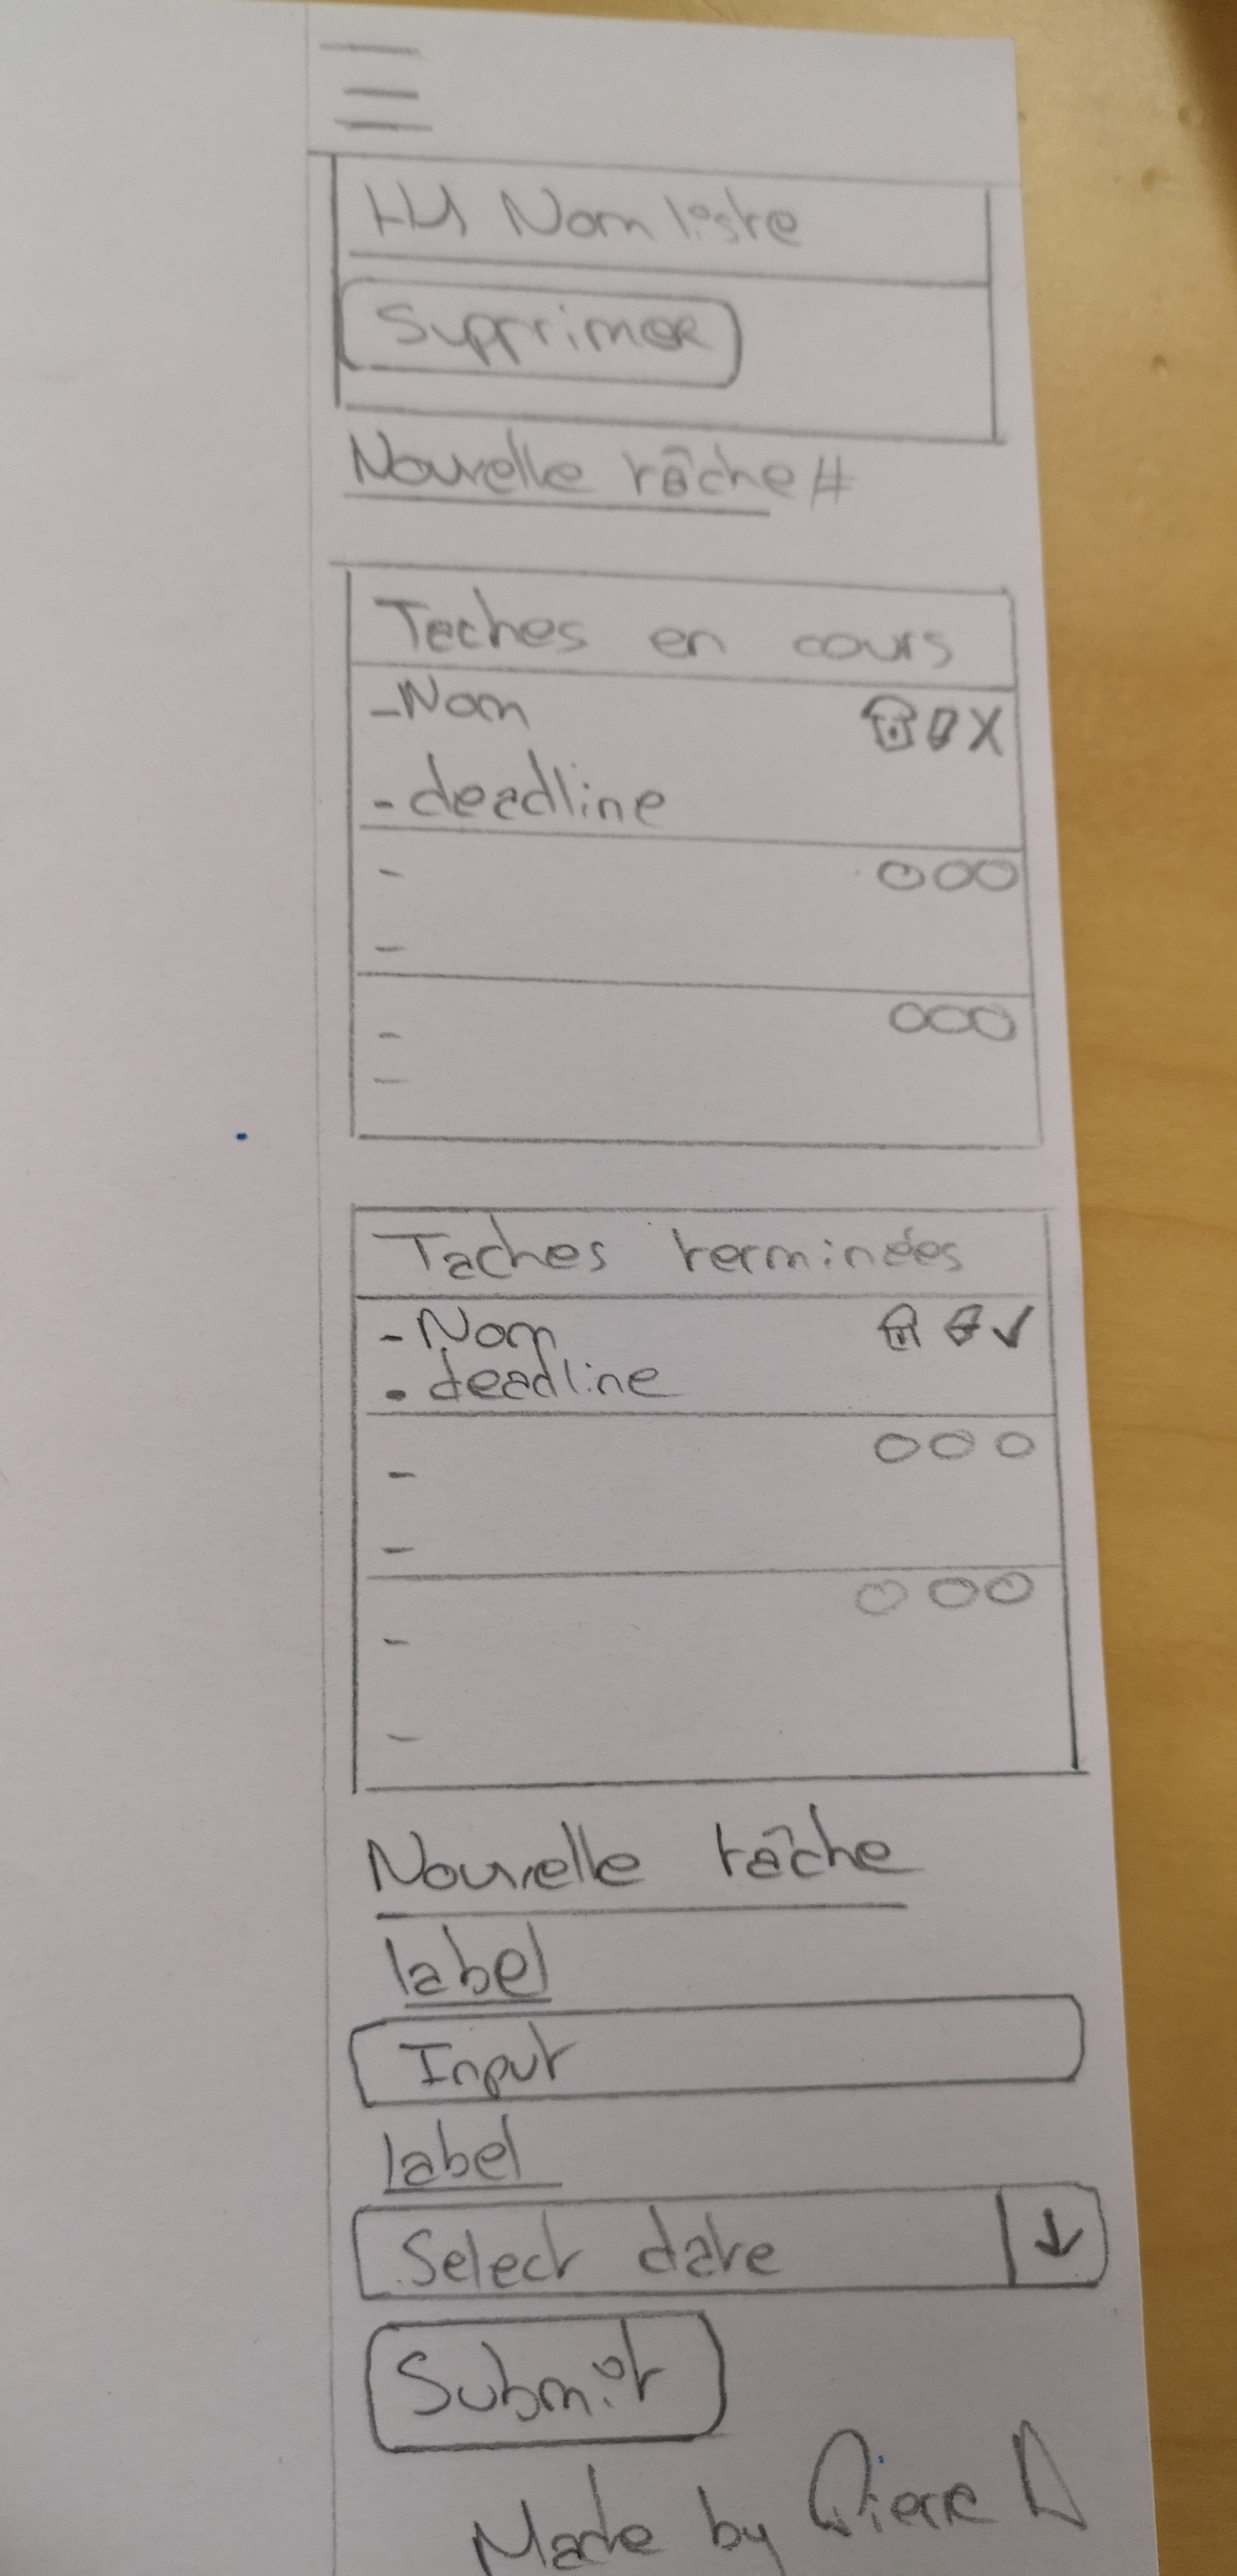 H1 Nom liste
Supprimer
Nouvelle tâche #
Taches en cours
- Nom X
- deadline
-
-
-
-
Taches terminées
- Nom ✓
- deadline
-
-
-
-
Nouvelle tâche
label
Input
label
Select date ↓
Submit
Made by Pierre D